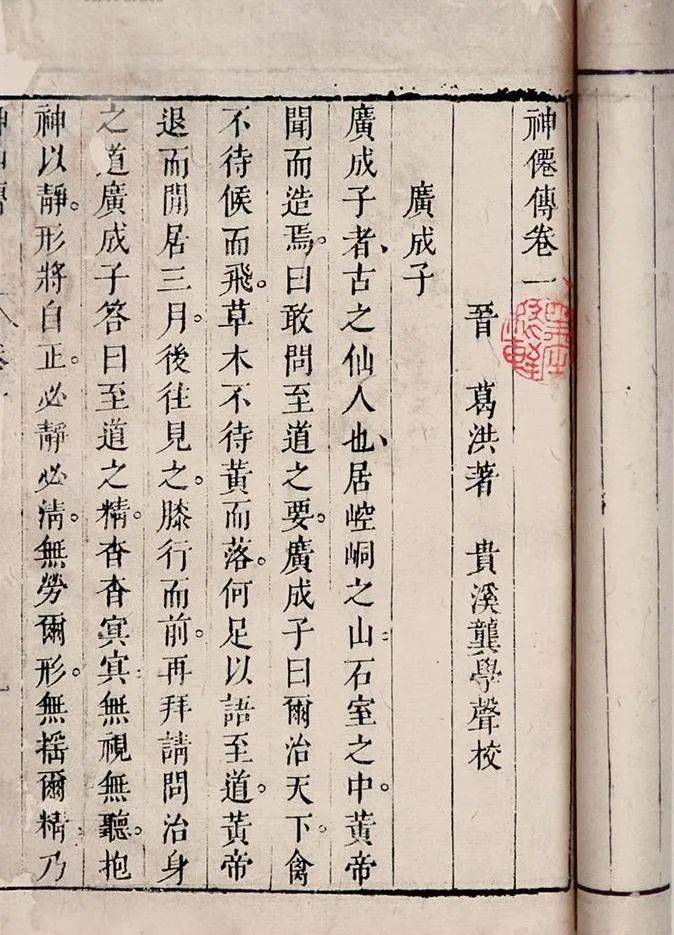 神僊傳卷一
晉 葛洪著 貴溪龔學聲校
廣成子
廣成子者、古之仙人也、居崆峒之山石室之中。黃帝
聞而造焉。曰敢問至道之要。廣成子曰爾治天下。禽
不待候而飛。草木不待黃而落。何足以語至道。黃帝
退而閒居三月。後往見之。膝行而前。再拜請問治身
之道廣成子答曰至道之精。杳杳冥冥無視無聽。抱
神以靜。形將自正。必靜必淸。無勞爾形。無搖爾精乃